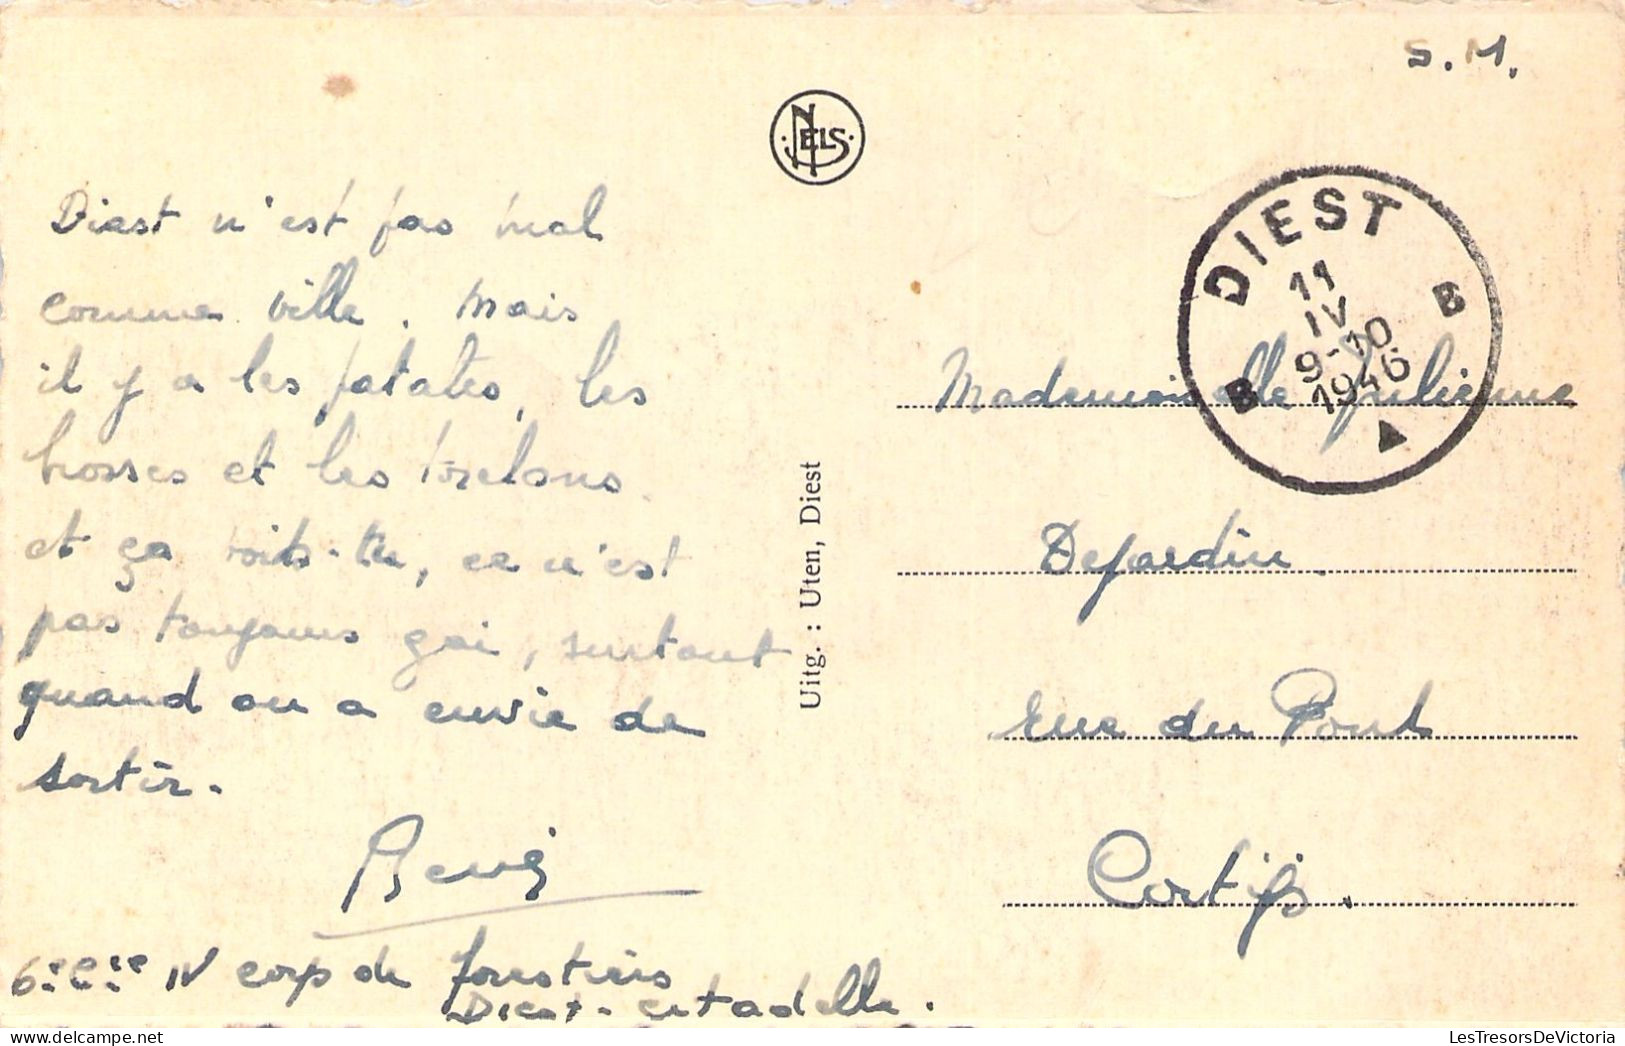 S.M.
NELS
Diest n'est pas mal
comme ville. Mais
il y a les patates, les
brosses et les torchons.
et ça vois-tu, ce n'est
pas toujours gai, surtout
quand on a envie de
sortir.
René
6e Cie IV corp de
Diest-citadelle.
Uitg. : Uten, Diest
DIEST
11
IV
9-10
1946
B B
Mademoiselle Julienne
Dejardin
rue du Pont
Cortil
LesTresorsDeVictoria